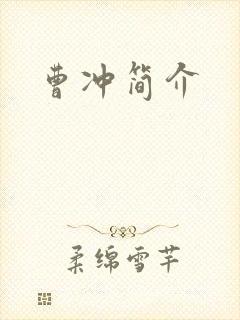 曹冲简介
柔绵雪芊